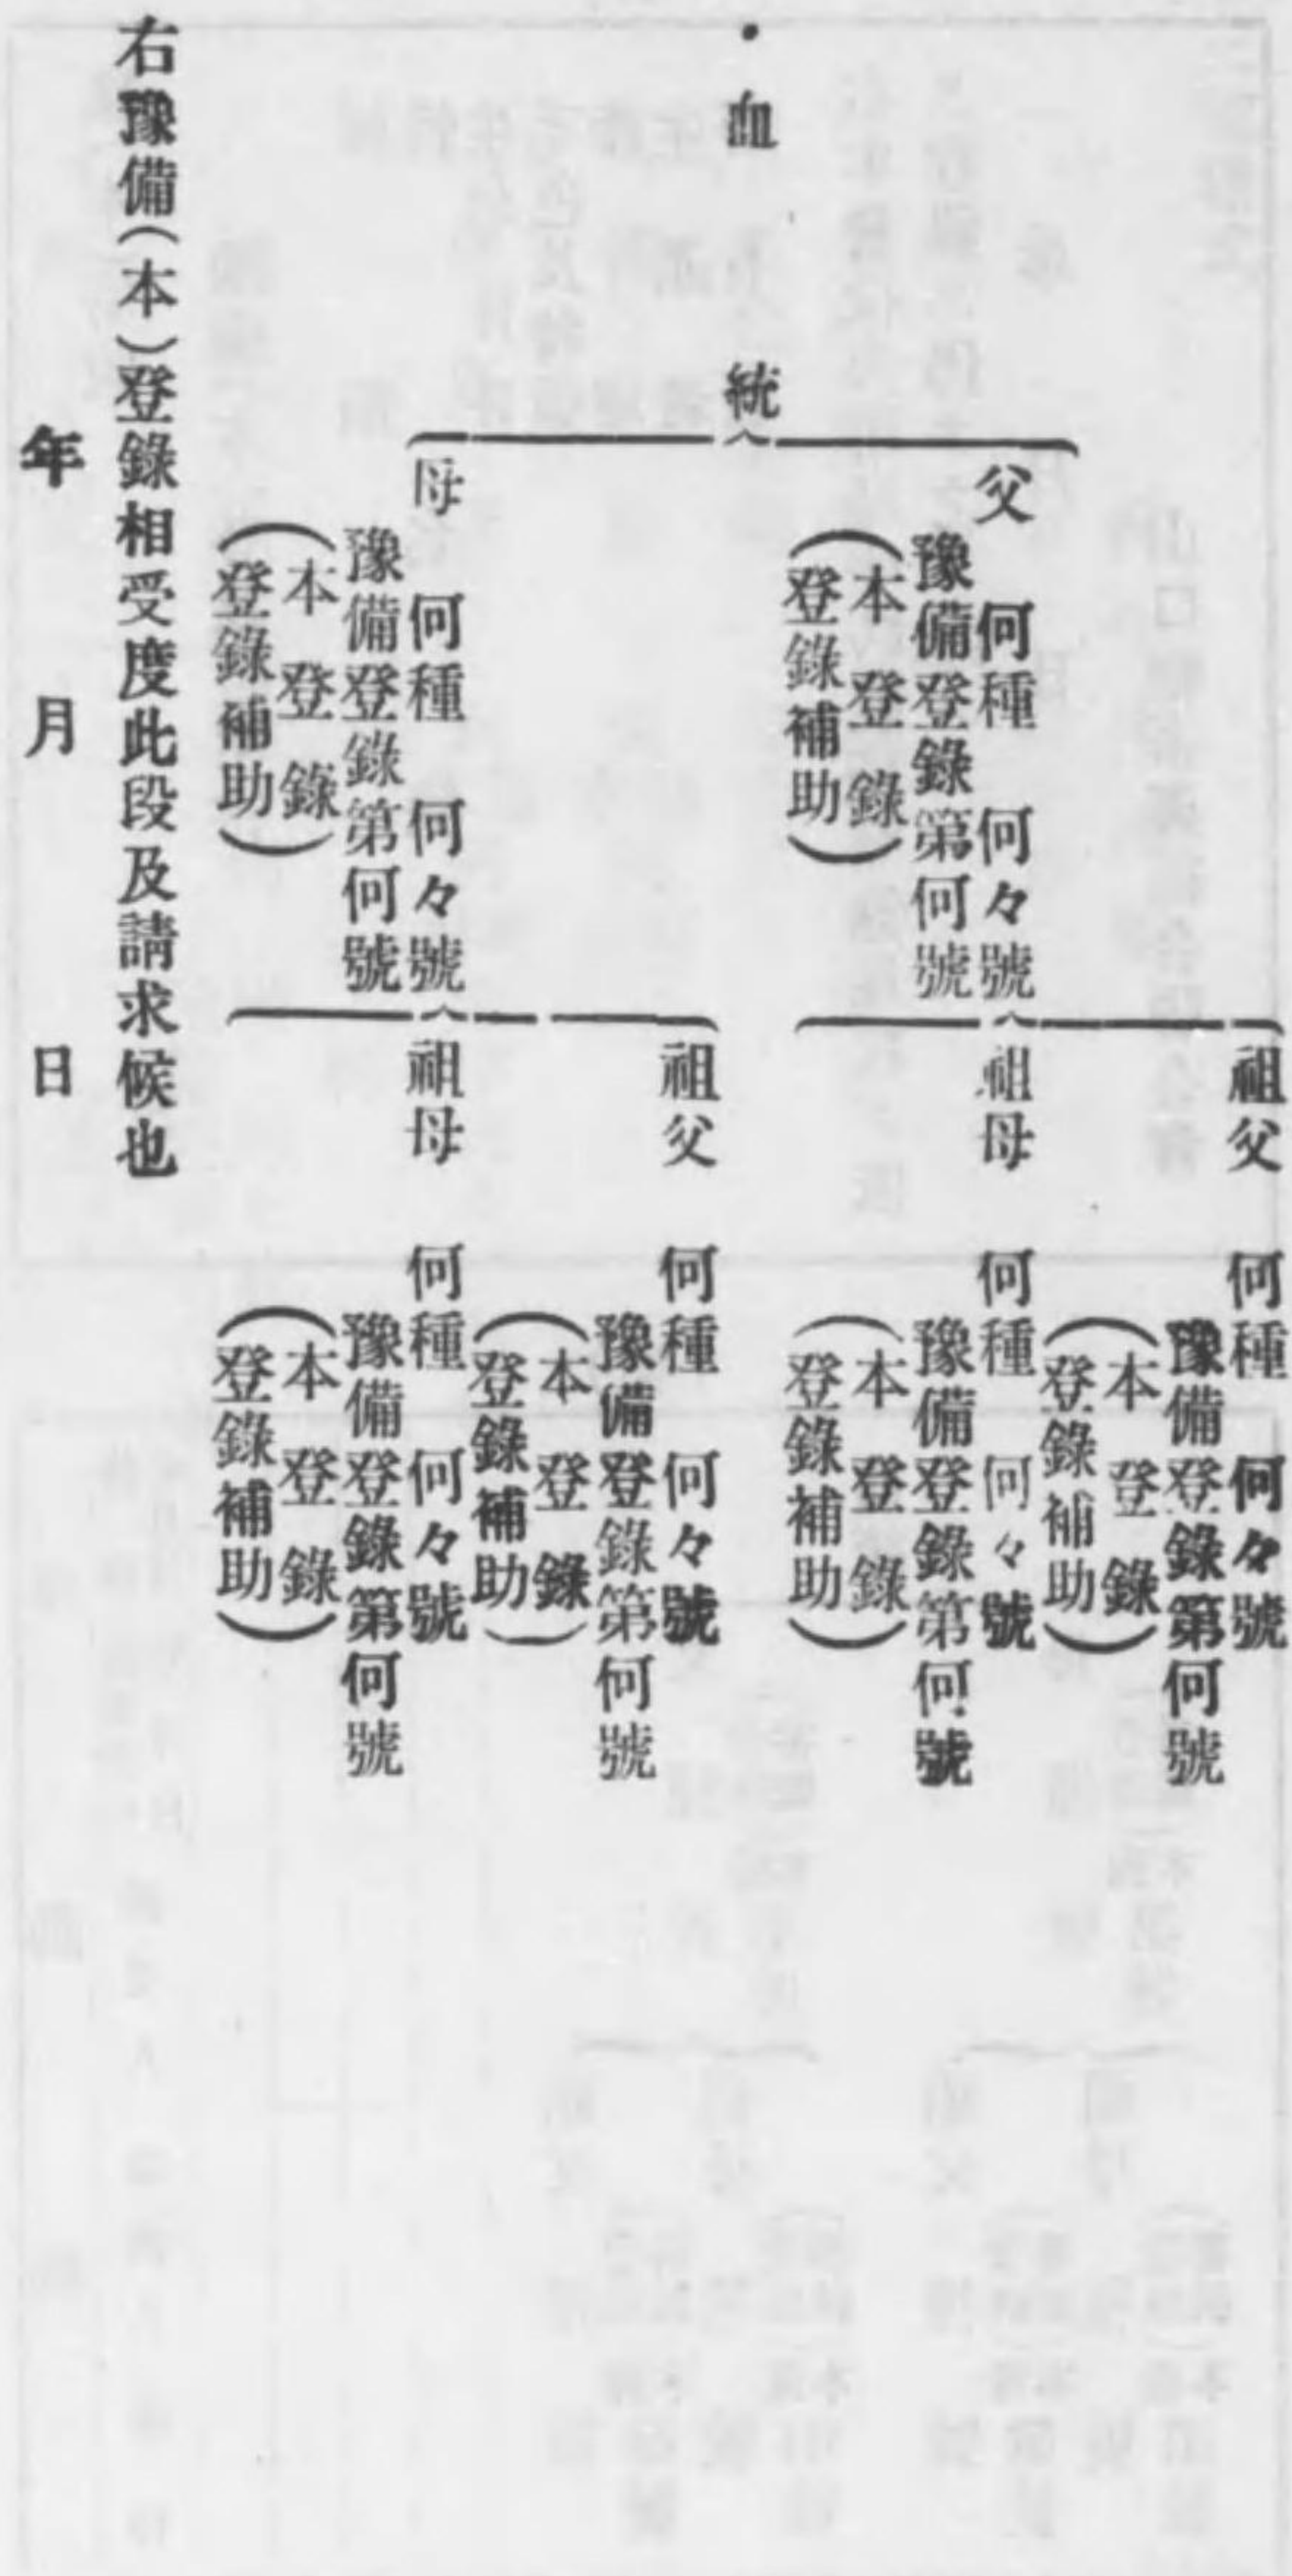 血統
父 何種 何々號
豫備登錄第何號
(本登錄
登錄補助)
祖父 何種 何々號
豫備登錄第何號
(本登錄
登錄補助)
祖母 何種 何々號
豫備登錄第何號
(本登錄
登錄補助)
母 何種 何々號
豫備登錄第何號
(本登錄
登錄補助)
祖父 何種 何々號
豫備登錄第何號
(本登錄
登錄補助)
祖母 何種 何々號
豫備登錄第何號
(本登錄
登錄補助)
右豫備(本)登錄相受度此段及請求候也
年 月 日